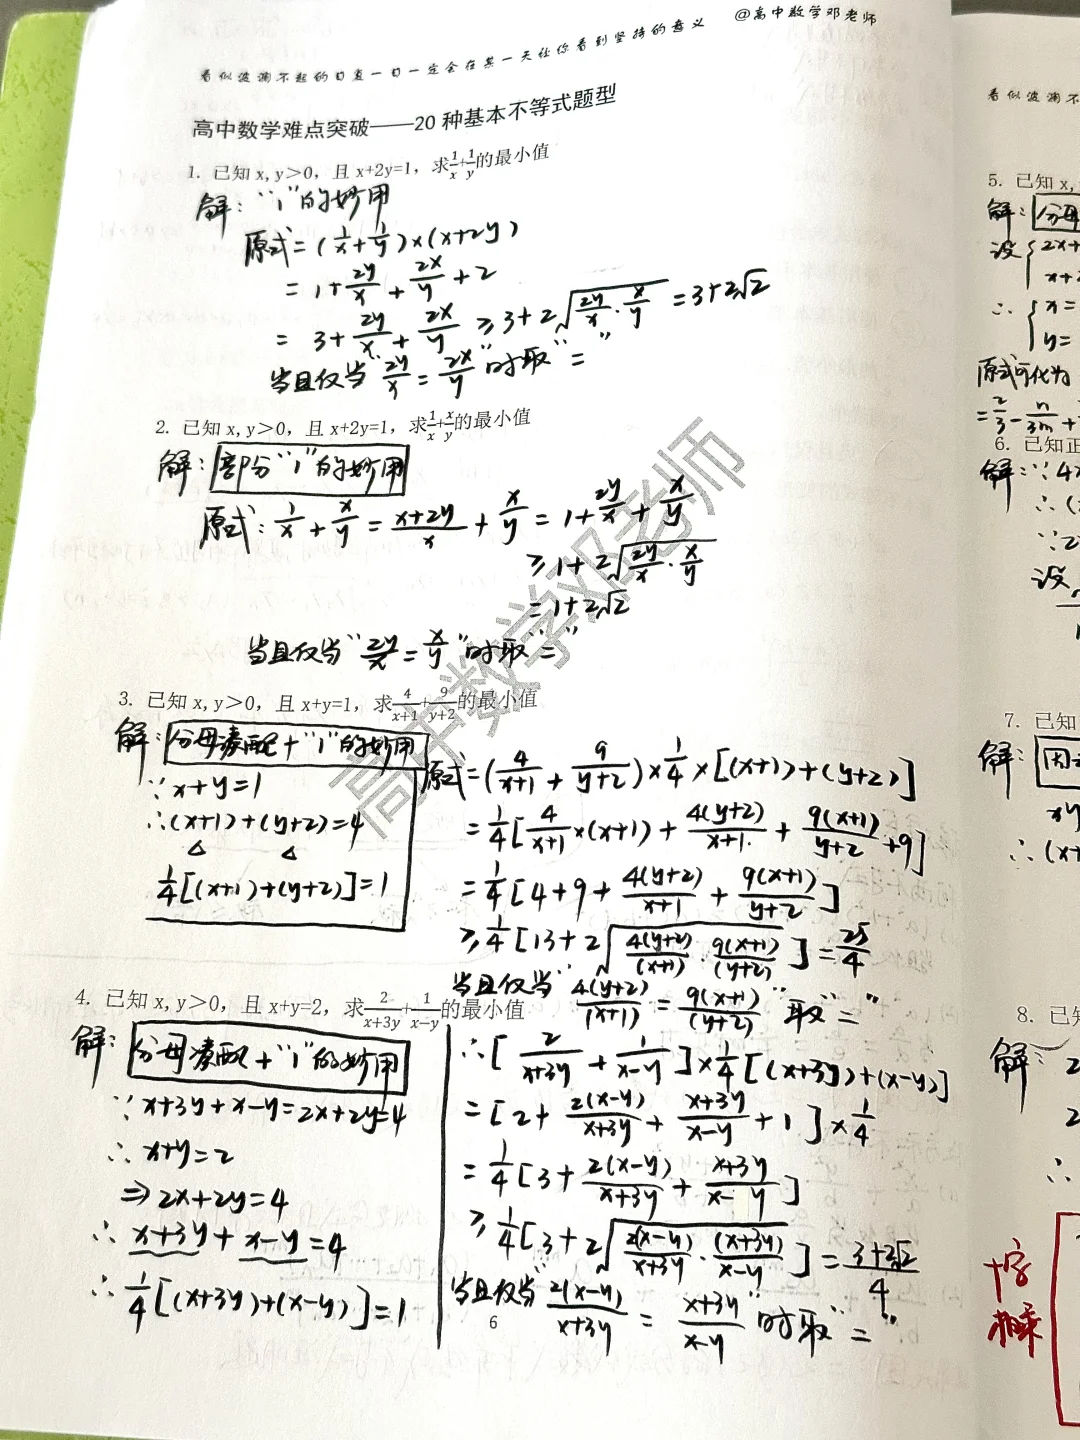 @高中数学邓老师
看似波澜不起的日复一日一定会在某一天让你看到坚持的意义
高中数学难点突破——20 种基本不等式题型
1. 已知 x,y＞0，且 x+2y=1，求1/x+1/y的最小值
解：“1”的妙用
原式=(1/x+1/y)×(x+2y)
=1+2y/x+2x/y+2
=3+2y/x+2x/y≥3+2√(2y/x·x/y)=3+2√2
当且仅当“2y/x=2x/y”时取“=”
2. 已知 x,y＞0，且 x+2y=1，求1/x+x/y的最小值
解：部分“1”的妙用
原式：1/x+x/y=(x+2y)/x+x/y=1+2y/x+x/y
≥1+2√(2y/x·x/y)
=1+2√2
当且仅当“2y/x=x/y”时取“=”
3. 已知 x,y＞0，且 x+y=1，求4/(x+1)+9/(y+2)的最小值
解：分母凑配+“1”的妙用
∵x+y=1
∴(x+1)+(y+2)=4
1/4[(x+1)+(y+2)]=1
原式=(4/(x+1)+9/(y+2))×1/4×[(x+1)+(y+2)]
=1/4[4/(x+1)×(x+1)+4(y+2)/(x+1)+9(x+1)/(y+2)+9]
=1/4[4+9+4(y+2)/(x+1)+9(x+1)/(y+2)]
≥1/4[13+2√(4(y+2)/(x+1)·9(x+1)/(y+2))]=25/4
当且仅当“4(y+2)/(x+1)=9(x+1)/(y+2)”取“=”
4. 已知 x,y＞0，且 x+y=2，求2/(x+3y)+1/(x−y)的最小值
解：分母凑配+“1”的妙用
∵x+3y+x-y=2x+2y=4
∴x+y=2
⇒2x+2y=4
∴x+3y+x-y=4
∴1/4[(x+3y)+(x-y)]=1
∴[2/(x+3y)+1/(x-y)]×1/4[(x+3y)+(x-y)]
=[2+2(x-y)/(x+3y)+(x+3y)/(x-y)+1]×1/4
=1/4[3+2(x-y)/(x+3y)+(x+3y)/(x-y)]
≥1/4[3+2√(2(x-y)/(x+3y)·(x+3y)/(x-y))]=(3+2√2)/4
当且仅当“2(x-y)/(x+3y)=(x+3y)/(x-y)”时取“=”
6
高中数学邓老师
看似波澜不
5. 已知 x,
解：分母
设{2x+
x+
∴{x=
y=
原式可化为
=2/3-n/3m+
6. 已知正
解：∵4x
∴(
∵2
设
7. 已知
解：因
xy
∴(x+
8. 已知
解：2
2
∴
十字
相乘